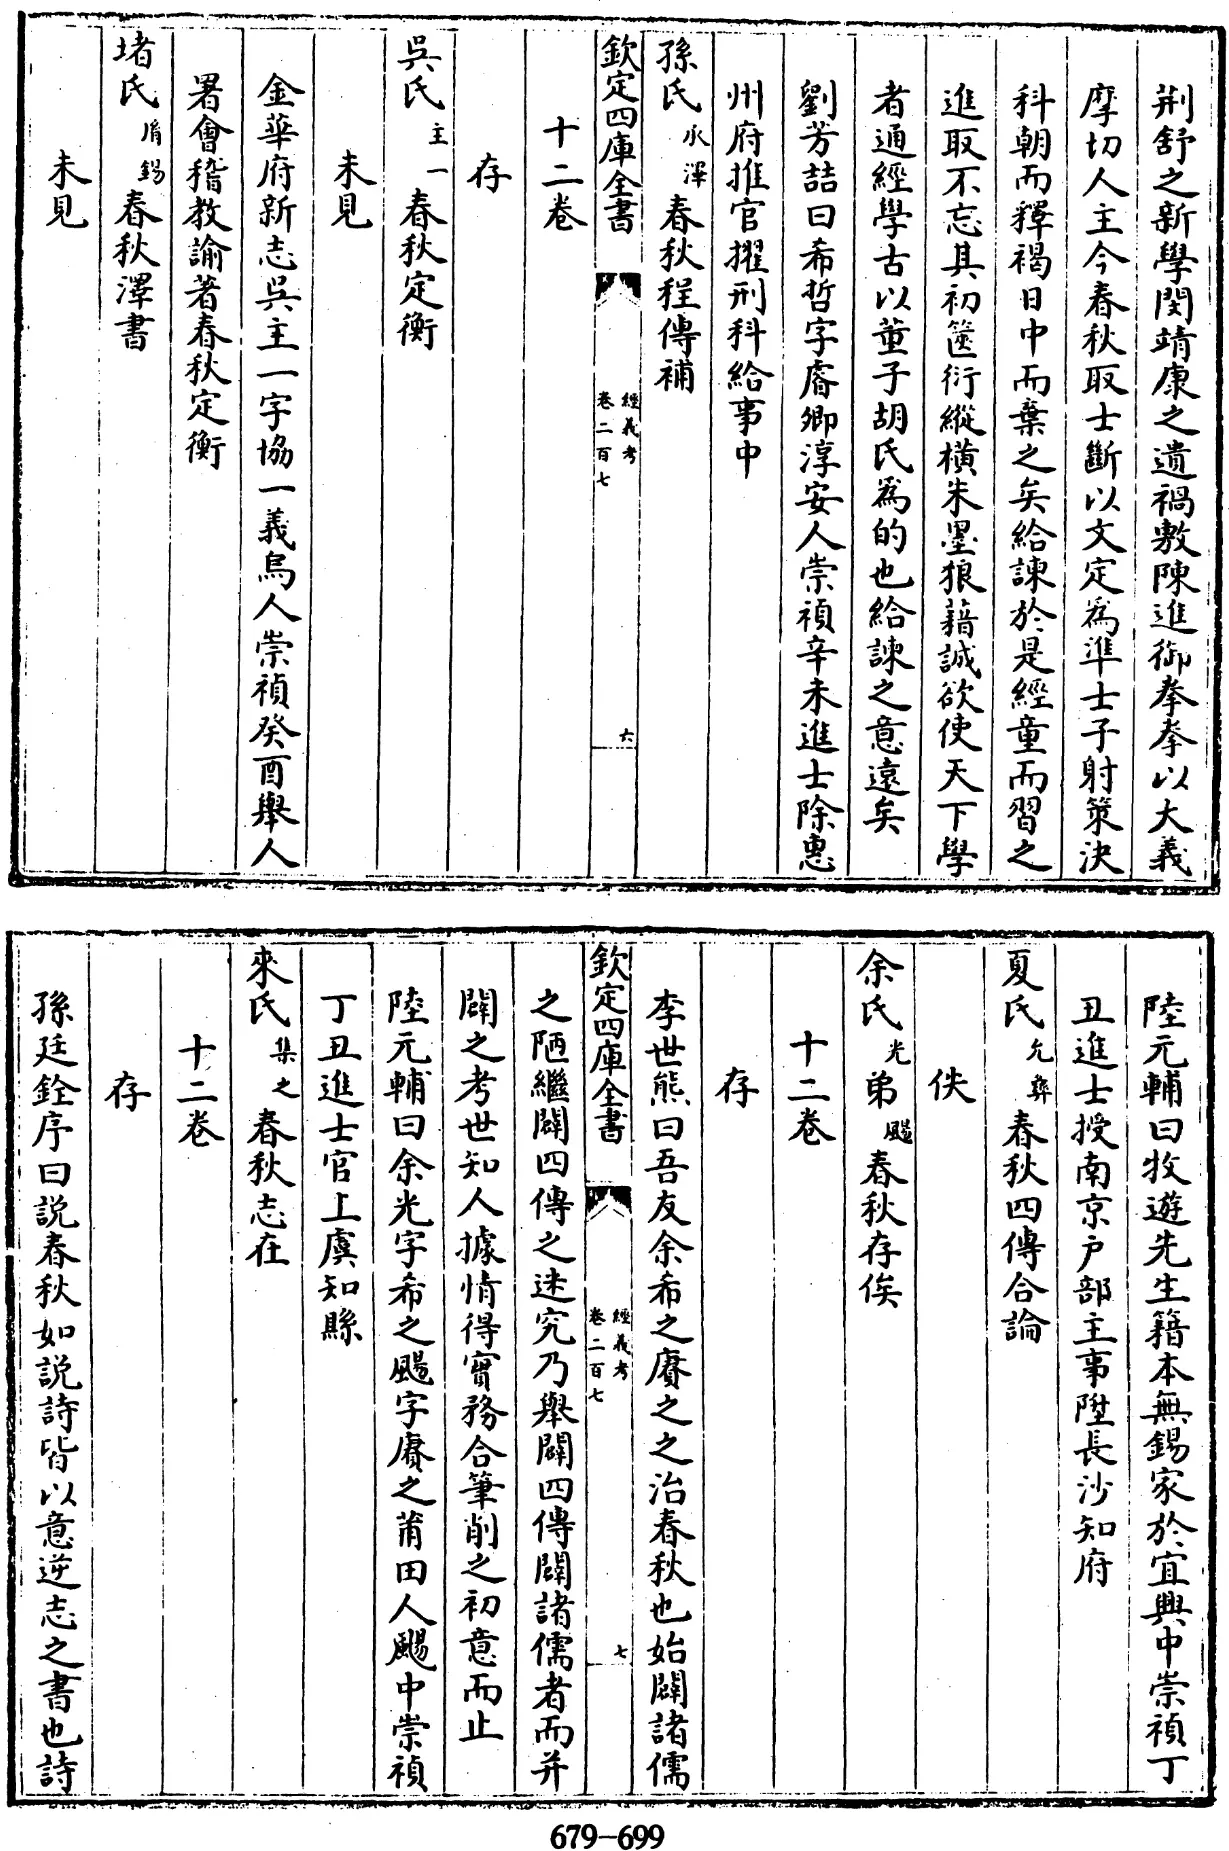 荆舒之新學閔靖康之遺禍敷陳進御拳拳以大義
摩切人主今春秋取士斷以文定為準士子射策決
科朝而釋褐日中而棄之矣給諫於是經童而習之
進取不忘其初篋衍縱橫朱墨狼藉誠欲使天下學
者通經學古以董子胡氏為的也給諫之意遠矣
劉芳喆曰希哲字睿卿淳安人崇禎辛未進士除惠
州府推官擢刑科給事中
孫氏承澤春秋程傳補
欽定四庫全書 經義考 卷二百七 六
十二卷
存
吳氏主一春秋定衡
未見
金華府新志吳主一字協一義烏人崇禎癸酉舉人
署會稽教諭著春秋定衡
堵氏胤錫春秋澤書
未見
陸元輔曰牧遊先生籍本無錫家於宜興中崇禎丁
丑進士授南京戶部主事陞長沙知府
夏氏允彝春秋四傳合論
佚
余氏光弟颺春秋存俟
十二卷
存
李世熊曰吾友余希之賡之之治春秋也始闢諸儒
欽定四庫全書 經義考 卷二百七 七
之陋繼闢四傳之迷究乃舉闢四傳闢諸儒者而并
闢之考世知人據情得實務合筆削之初意而止
陸元輔曰余光字希之颺字賡之莆田人颺中崇禎
丁丑進士官上虞知縣
來氏集之春秋志在
十二卷
存
孫廷銓序曰說春秋如說詩皆以意逆志之書也詩
679-699